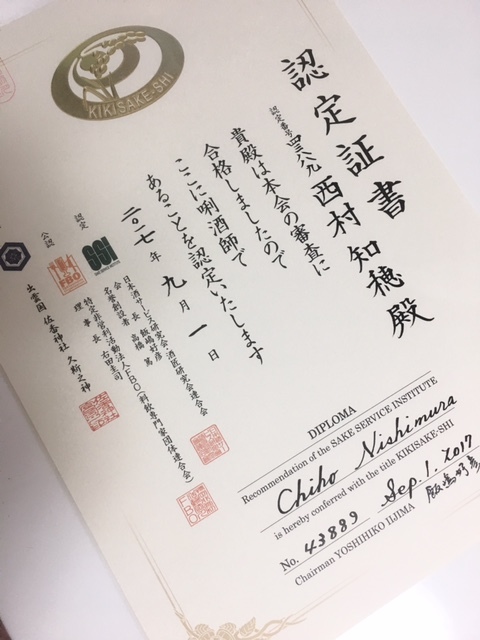 KIKISAKE-SHI
認定証書
認定番号 四三八八九
西村知穂殿
貴殿は本会の審査に
合格しましたので
ここに唎酒師で
あることを認定いたします
二〇一七年 九月一日
認定
SSI
日本酒サービス研究会・酒匠研究会連合会
会長 飯嶋好彦
名誉創設者 高橋篤
公認
FBO
特定非営利活動法人FBO(料飲専門家団体連合会)
理事長 右田圭司
出雲国 佐香神社 久斯之神
FBO
DIPLOMA
Recommendation of the SAKE SERVICE INSTITUTE
Chiho Nishimura
is hereby conferred with the title KIKISAKE-SHI
No. 43889 Sep. 1. 2017
Chairman YOSHIHIKO IIJIMA 飯嶋好彦